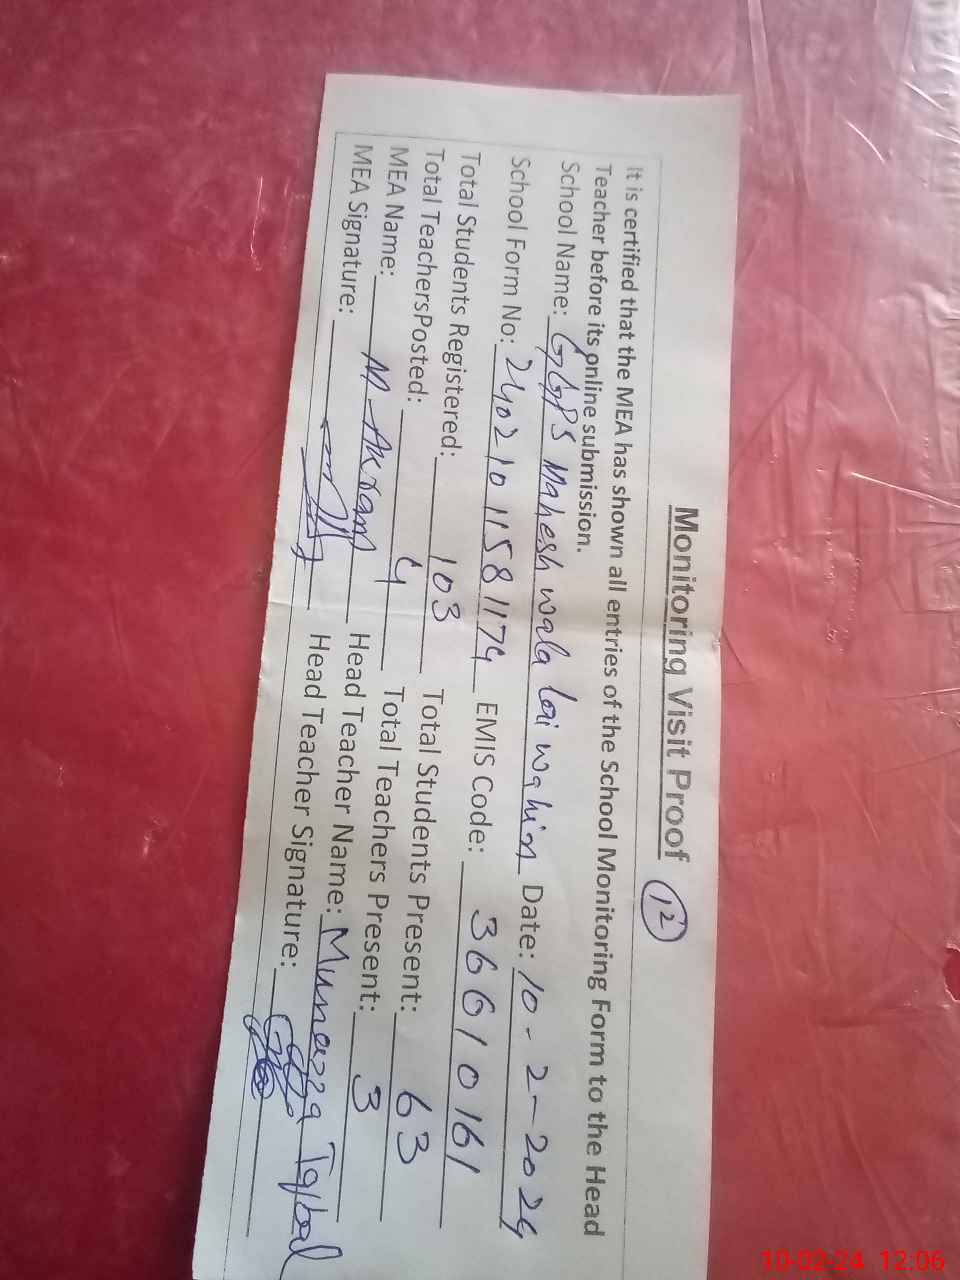 Monitoring Visit Proof 12
It is certified that the MEA has shown all entries of the School Monitoring Form to the Head
Teacher before its online submission.
School Name: GGPS Mahesh wala loi wahin Date: 10-2-2024
School Form No: 24021011581174 EMIS Code: 36610161
Total Students Registered: 103 Total Students Present: 63
Total TeachersPosted: 4 Total Teachers Present: 3
MEA Name: M-Akram Head Teacher Name: Munazza Iqbal
MEA Signature: Head Teacher Signature:
10-02-24 12:06